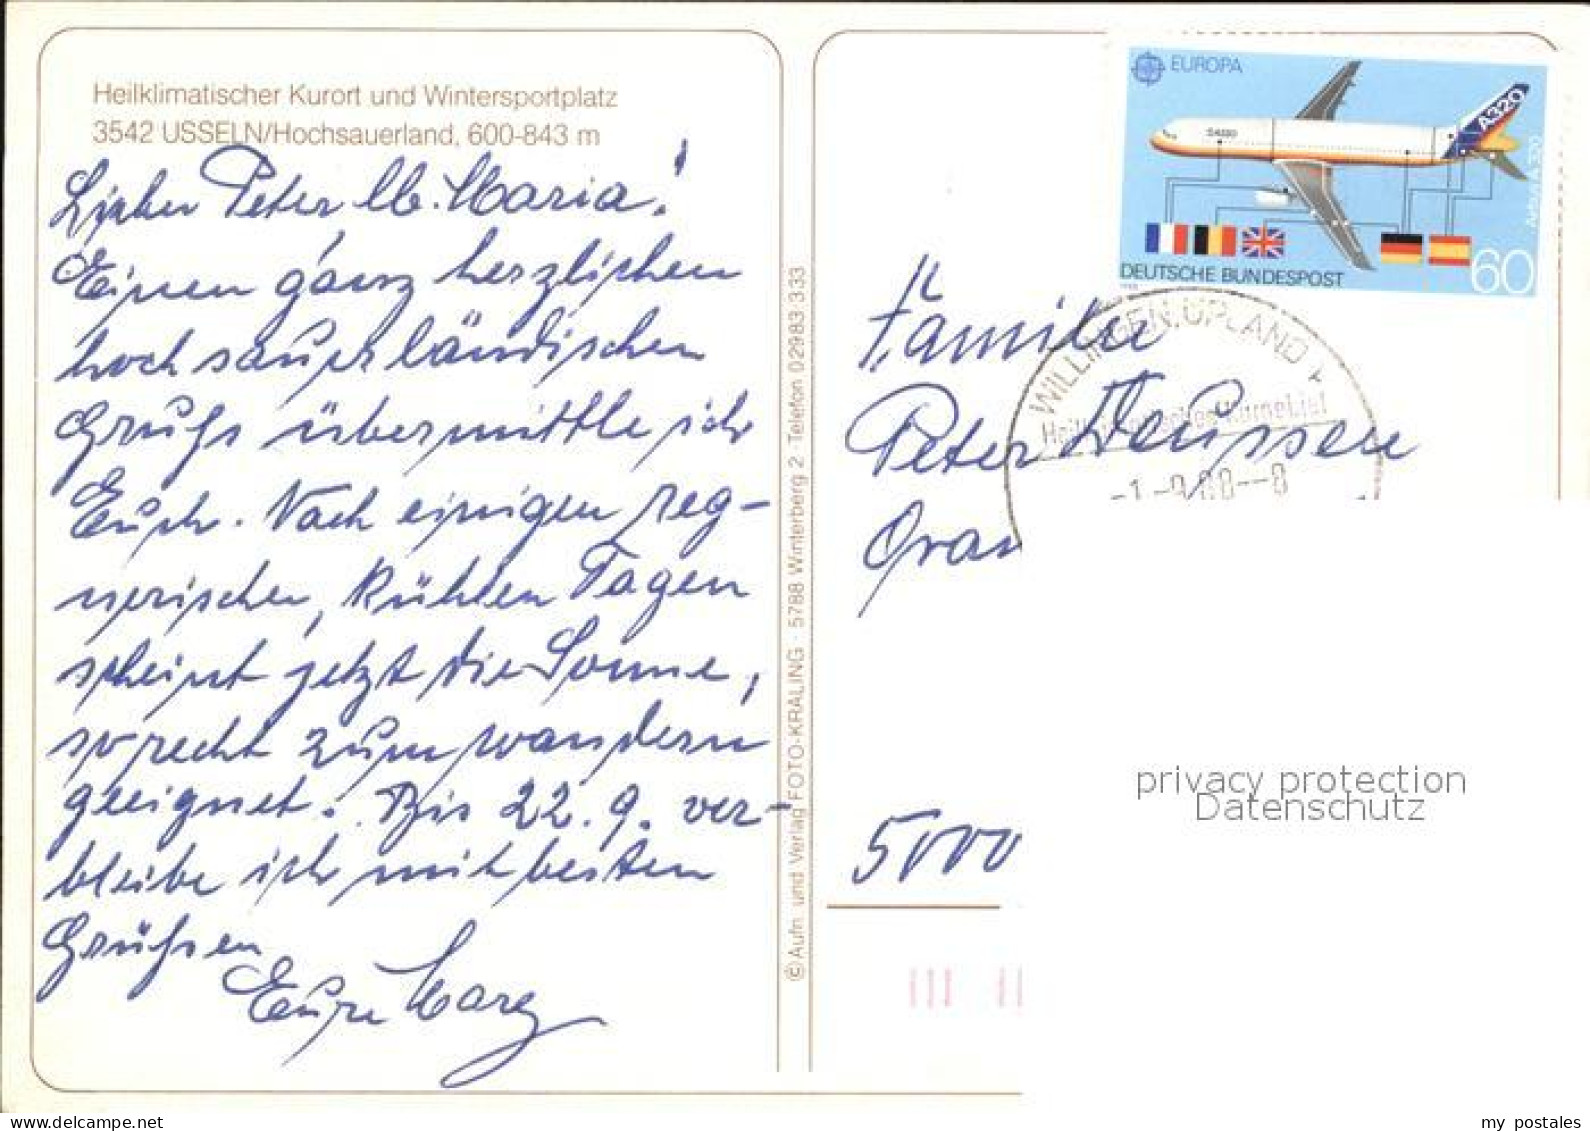 Heilklimatischer Kurort und Wintersportplatz
3542 USSELN/Hochsauerland, 600-843 m
Lieber Peter Maria!
Einen ganz herzlichen
hochsauerländischen
Gruß übermittle ich
Euch. Nach einigen reg-
nerischen, kühlen Tagen
scheint jetzt die Sonne,
so recht zum wandern
geeignet. Bis 22.9. ver-
bleibe ich mit besten
Grüßen
Eure
© Aufn. und Verlag FOTO-KRALING · 5788 Winterberg 2 · Telefon 02983 333
EUROPA
A320
AIRBUS A320
DEUTSCHE BUNDESPOST
60
WILLINGEN, UPLAND
Familie
Peter Deussen
5000
privacy protection
Datenschutz
my postales